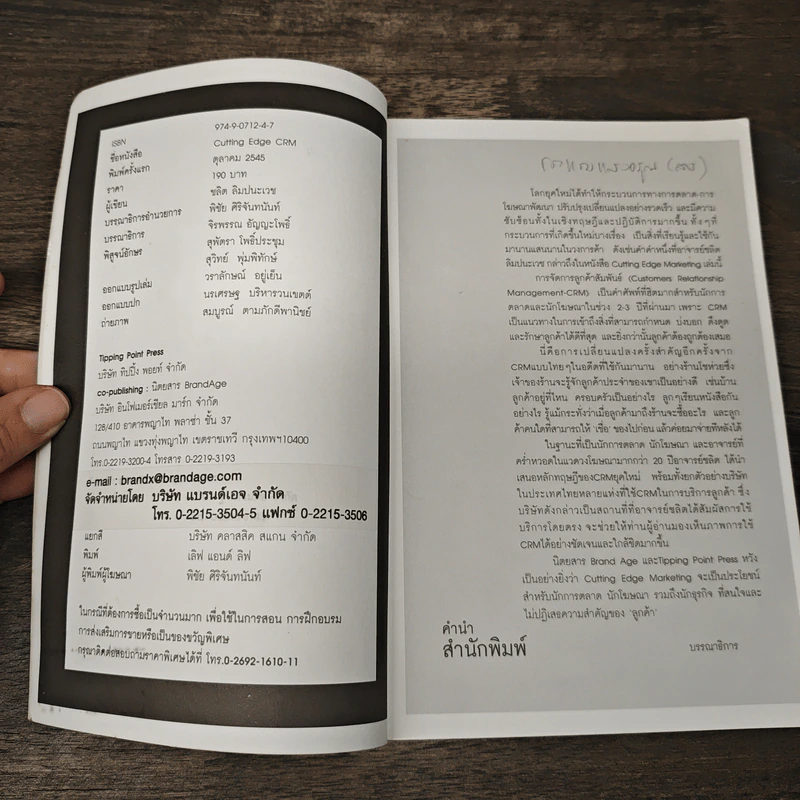 ISBN 974-9-0712-4-7
ชื่อหนังสือ Cutting Edge CRM
พิมพ์ครั้งแรก ตุลาคม 2545
ราคา 190 บาท
ผู้เขียน ชลิต ลิมปนะเวช
บรรณาธิการอำนวยการ พิชัย ศิริจันทนันท์
บรรณาธิการ จิรพรรณ อัญญะโพธิ์
พิสูจน์อักษร สุพัตรา โพธิ์ประชุม
สุวิทย์ พุ่มพิทักษ์
ออกแบบรูปเล่ม วราลักษณ์ อยู่เย็น
ออกแบบปก นรเศรษฐ บริหารวนเขตต์
ถ่ายภาพ สมบูรณ์ ตามภักดีพานิชย์
Tipping Point Press
บริษัท ทิปปิ้ง พอยท์ จำกัด
co-publishing : นิตยสาร BrandAge
บริษัท อินโฟเมอร์เชียล มาร์ก จำกัด
128/410 อาคารพญาไท พลาซ่า ชั้น 37
ถนนพญาไท แขวงทุ่งพญาไท เขตราชเทวี กรุงเทพฯ10400
โทร.0-2219-3200-4 โทรสาร 0-2219-3193
e-mail : brandx@brandage.com
จัดจำหน่ายโดย บริษัท แบรนด์เอจ จำกัด
โทร. 0-2215-3504-5 แฟกซ์ 0-2215-3506
แยกสี บริษัท คลาสสิค สแกน จำกัด
พิมพ์ เลิฟ แอนด์ ลิฟ
ผู้พิมพ์ผู้โฆษณา พิชัย ศิริจันทนันท์
ในกรณีที่ต้องการซื้อเป็นจำนวนมาก เพื่อใช้ในการสอน การฝึกอบรม
การส่งเสริมการขายหรือเป็นของขวัญพิเศษ
กรุณาติดต่อสอบถามราคาพิเศษได้ที่ โทร.0-2692-1610-11
โลกยุคใหม่ได้ทำให้กระบวนการทางการตลาด-การ
โฆษณาพัฒนา ปรับปรุงเปลี่ยนแปลงอย่างรวดเร็ว และมีความ
ซับซ้อนทั้งในเชิงทฤษฎีและปฏิบัติการมากขึ้น ทั้งๆที่
กระบวนการที่เกิดขึ้นใหม่บางเรื่อง เป็นสิ่งที่เรียนรู้และใช้กัน
มานานแสนนานในวงการค้า ดังเช่นคำคำหนึ่งที่อาจารย์ชลิต
ลิมปนะเวช กล่าวถึงในหนังสือ Cutting Edge Marketing เล่มนี้
การจัดการลูกค้าสัมพันธ์ (Customers Relationship
Management-CRM) เป็นคำศัพท์ที่ฮิตมากสำหรับนักการ
ตลาดและนักโฆษณาในช่วง 2-3 ปีที่ผ่านมา เพราะ CRM
เป็นแนวทางในการเข้าถึงสิ่งที่สามารถกำหนด บ่งบอก ดึงดูด
และรักษาลูกค้าได้ดีที่สุด และยิ่งกว่านั้นลูกค้าต้องถูกต้องเสมอ
นี่คือการเปลี่ยนแปลงครั้งสำคัญอีกครั้งจาก
CRMแบบไทยๆในอดีตที่ใช้กันมานาน อย่างร้านโชห่วยซึ่ง
เจ้าของร้านจะรู้จักลูกค้าประจำของเขาเป็นอย่างดี เช่นบ้าน
ลูกค้าอยู่ที่ไหน ครอบครัวเป็นอย่างไร ลูกๆเรียนหนังสือกัน
อย่างไร รู้แม้กระทั่งว่าเมื่อลูกค้ามาถึงร้านจะซื้ออะไร และลูก
ค้าคนใดที่สามารถให้ 'เชื่อ' ของไปก่อน แล้วค่อยมาจ่ายทีหลังได้
ในฐานะที่เป็นนักการตลาด นักโฆษณา และอาจารย์ที่
คร่ำหวอดในแวดวงโฆษณามากกว่า 20 ปีอาจารย์ชลิต ได้นำ
เสนอหลักทฤษฎีของCRMยุคใหม่ พร้อมทั้งยกตัวอย่างบริษัท
ในประเทศไทยหลายแห่งที่ใช้CRMในการบริการลูกค้า ซึ่ง
บริษัทดังกล่าวเป็นสถานที่ที่อาจารย์ชลิตได้สัมผัสการใช้
บริการโดยตรง จะช่วยให้ท่านผู้อ่านมองเห็นภาพการใช้
CRMได้อย่างชัดเจนและใกล้ชิดมากขึ้น
นิตยสาร Brand Age และTipping Point Press หวัง
เป็นอย่างยิ่งว่า Cutting Edge Marketing จะเป็นประโยชน์
สำหรับนักการตลาด นักโฆษณา รวมถึงนักธุรกิจ ที่สนใจและ
ไม่ปฏิเสธความสำคัญของ 'ลูกค้า'
คำนำ
สำนักพิมพ์
บรรณาธิการ